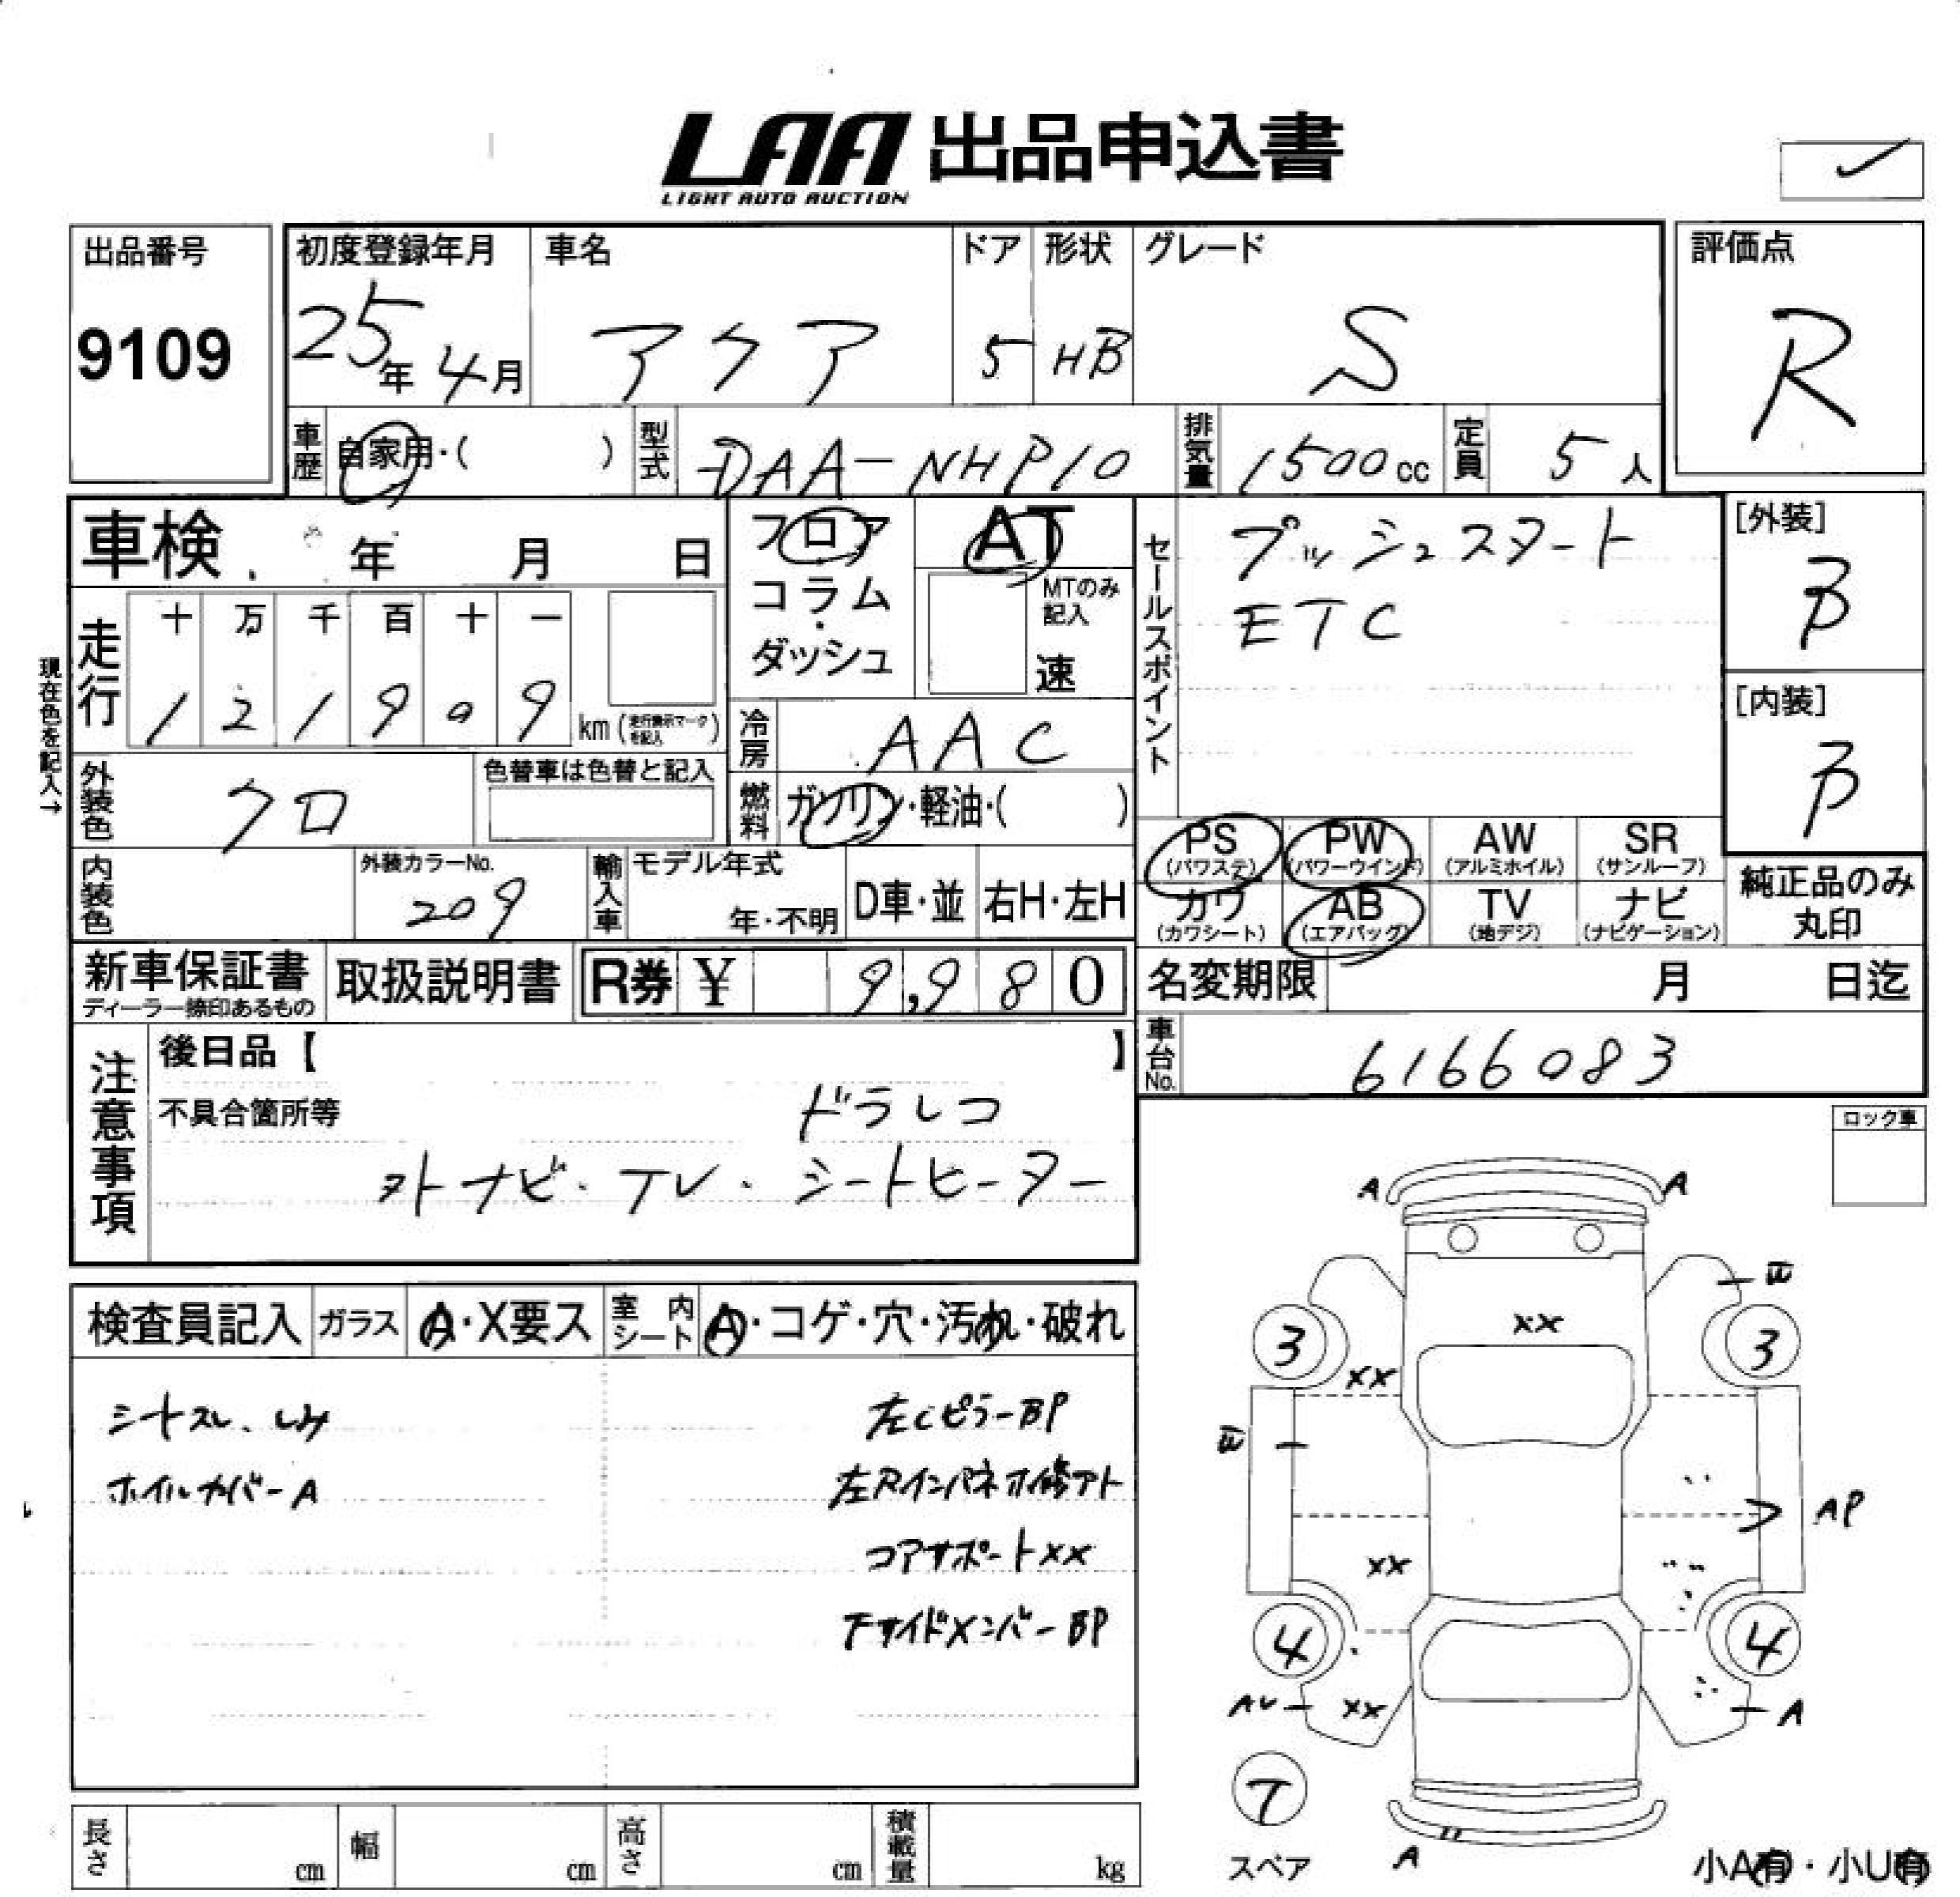 LAA 出品申込書
LIGHT AUTO AUCTION
出品番号
9109
初度登録年月
25年 4月
車名
アクア
ドア
5
形状
HB
グレード
S
評価点
R
車歴 自家用・( )
型式 DAA-NHP10
排気量 1500cc
定員 5人
車検 年 月 日
フロア
コラム・
ダッシュ
AT
MTのみ
記入
速
セールスポイント
プッシュスタート
ETC
[外装]
B
[内装]
B
現在色を記入→
走行
十 万 千 百 十 一
1 2 1 9 0 9 km (走行表示マークを記入)
冷房 AAC
外装色 クロ
色替車は色替と記入
燃料 ガソリン・軽油・( )
内装色
外装カラーNo.
209
輸入車
モデル年式
年・不明
D車・並 右H・左H
PS
(パワステ)
PW
(パワーウインド)
AW
(アルミホイル)
SR
(サンルーフ)
カワ
(カワシート)
AB
(エアバッグ)
TV
(地デジ)
ナビ
(ナビゲーション)
純正品のみ
丸印
新車保証書
ディーラー捺印あるもの
取扱説明書
R券 ¥ 9,980
名変期限 月 日迄
車台No. 6166083
注意事項
後日品【 】
不具合箇所等
ドラレコ
外ナビ・TV・シートヒーター
ロック車
検査員記入 ガラス A・X要ス 室内シート A・コゲ・穴・汚れ・破れ
シートスレ、しみ
ホイルカバーA
左CピラーBP
左Rインパネホ修アト
コアサポートXX
FサイドメンバーBP
A A
E
3 XX 3
XX
E
AP
XX
4 4
AU XX A
7
スペア
A
小A有・小U有
長さ cm 幅 cm 高さ cm 積載量 kg